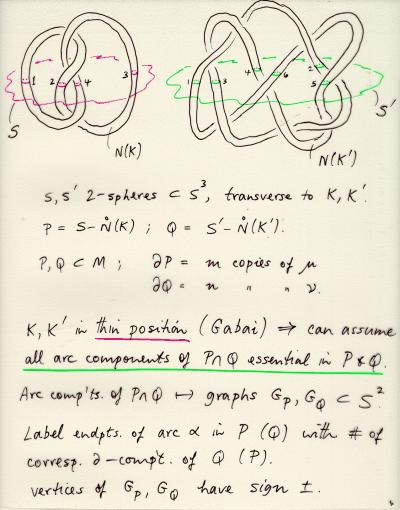 1 2 4 3
1 3 4 6 2 5
S
N(K)
S'
N(K')
S, S' 2-spheres ⊂ S³, transverse to K, K'.
P = S - N̊(K) ; Q = S' - N̊(K').
P, Q ⊂ M ; ∂P = m copies of μ
∂Q = n " " ν.
K, K' in thin position (Gabai) ⇒ can assume
all arc components of P∩Q essential in P & Q.
Arc comp'ts. of P∩Q ↦ graphs G_P, G_Q ⊂ S².
Label endpts. of arc α in P (Q) with # of
corresp. ∂-compt. of Q (P).
vertices of G_P, G_Q have sign ±.